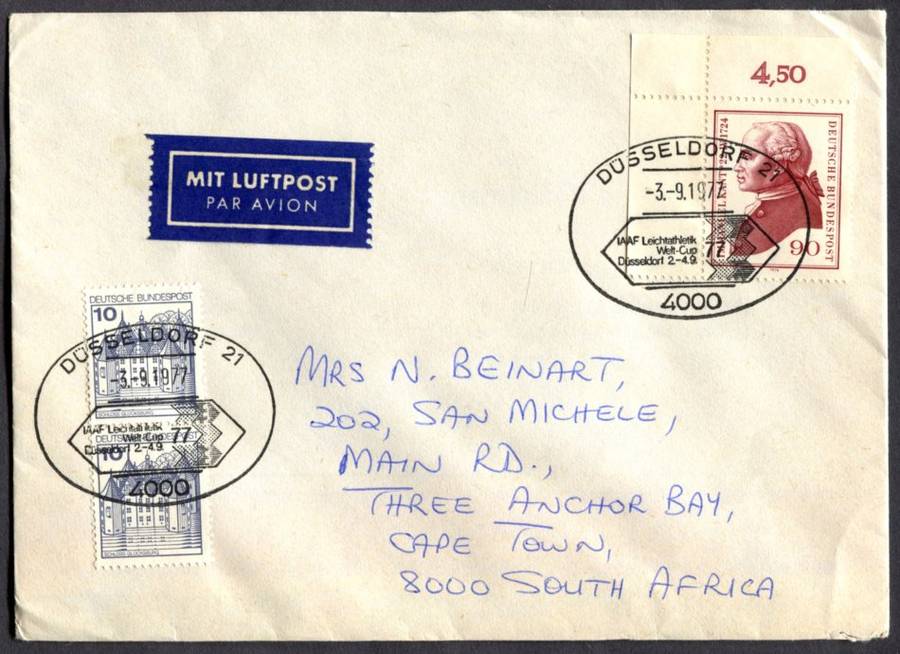 4,50
DEUTSCHE BUNDESPOST
90
DÜSSELDORF 21
-3.-9.1977
IAAF Leichtathletik
Welt-Cup 77
Düsseldorf 2.-4.9.
4000
MIT LUFTPOST
PAR AVION
DEUTSCHE BUNDESPOST
10
DÜSSELDORF 21
-3.-9.1977
IAAF Leichtathletik
Welt-Cup 77
Düsseldorf 2.-4.9.
10
4000
SCHLOSS GLÜCKSBURG
MRS N. BEINART,
202, SAN MICHELE,
MAIN RD.,
THREE ANCHOR BAY,
CAPE TOWN,
8000 SOUTH AFRICA